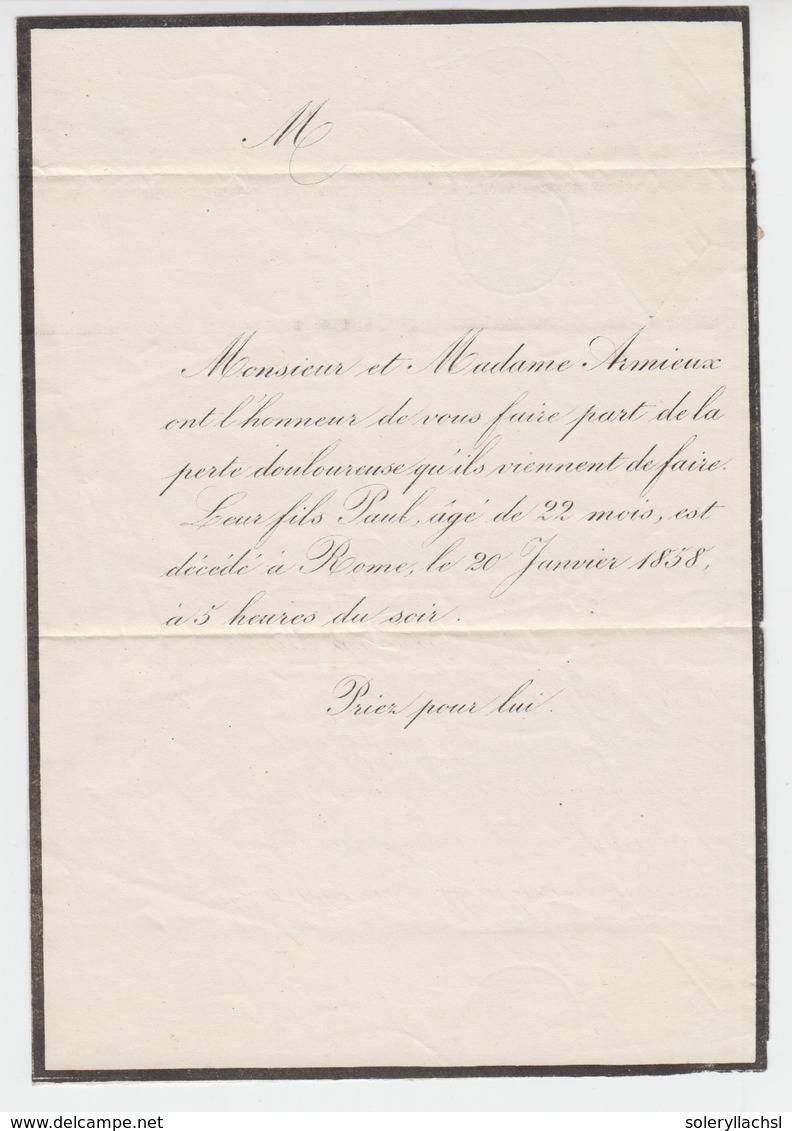 M
Monsieur et Madame Armieux
ont l'honneur de vous faire part de la
perte douloureuse qu'ils viennent de faire.
Leur fils Paul, âgé de 22 mois, est
décédé à Rome, le 20 Janvier 1858,
à 5 heures du soir.
Priez pour lui.
www.delcampe.net
soleryllachsl